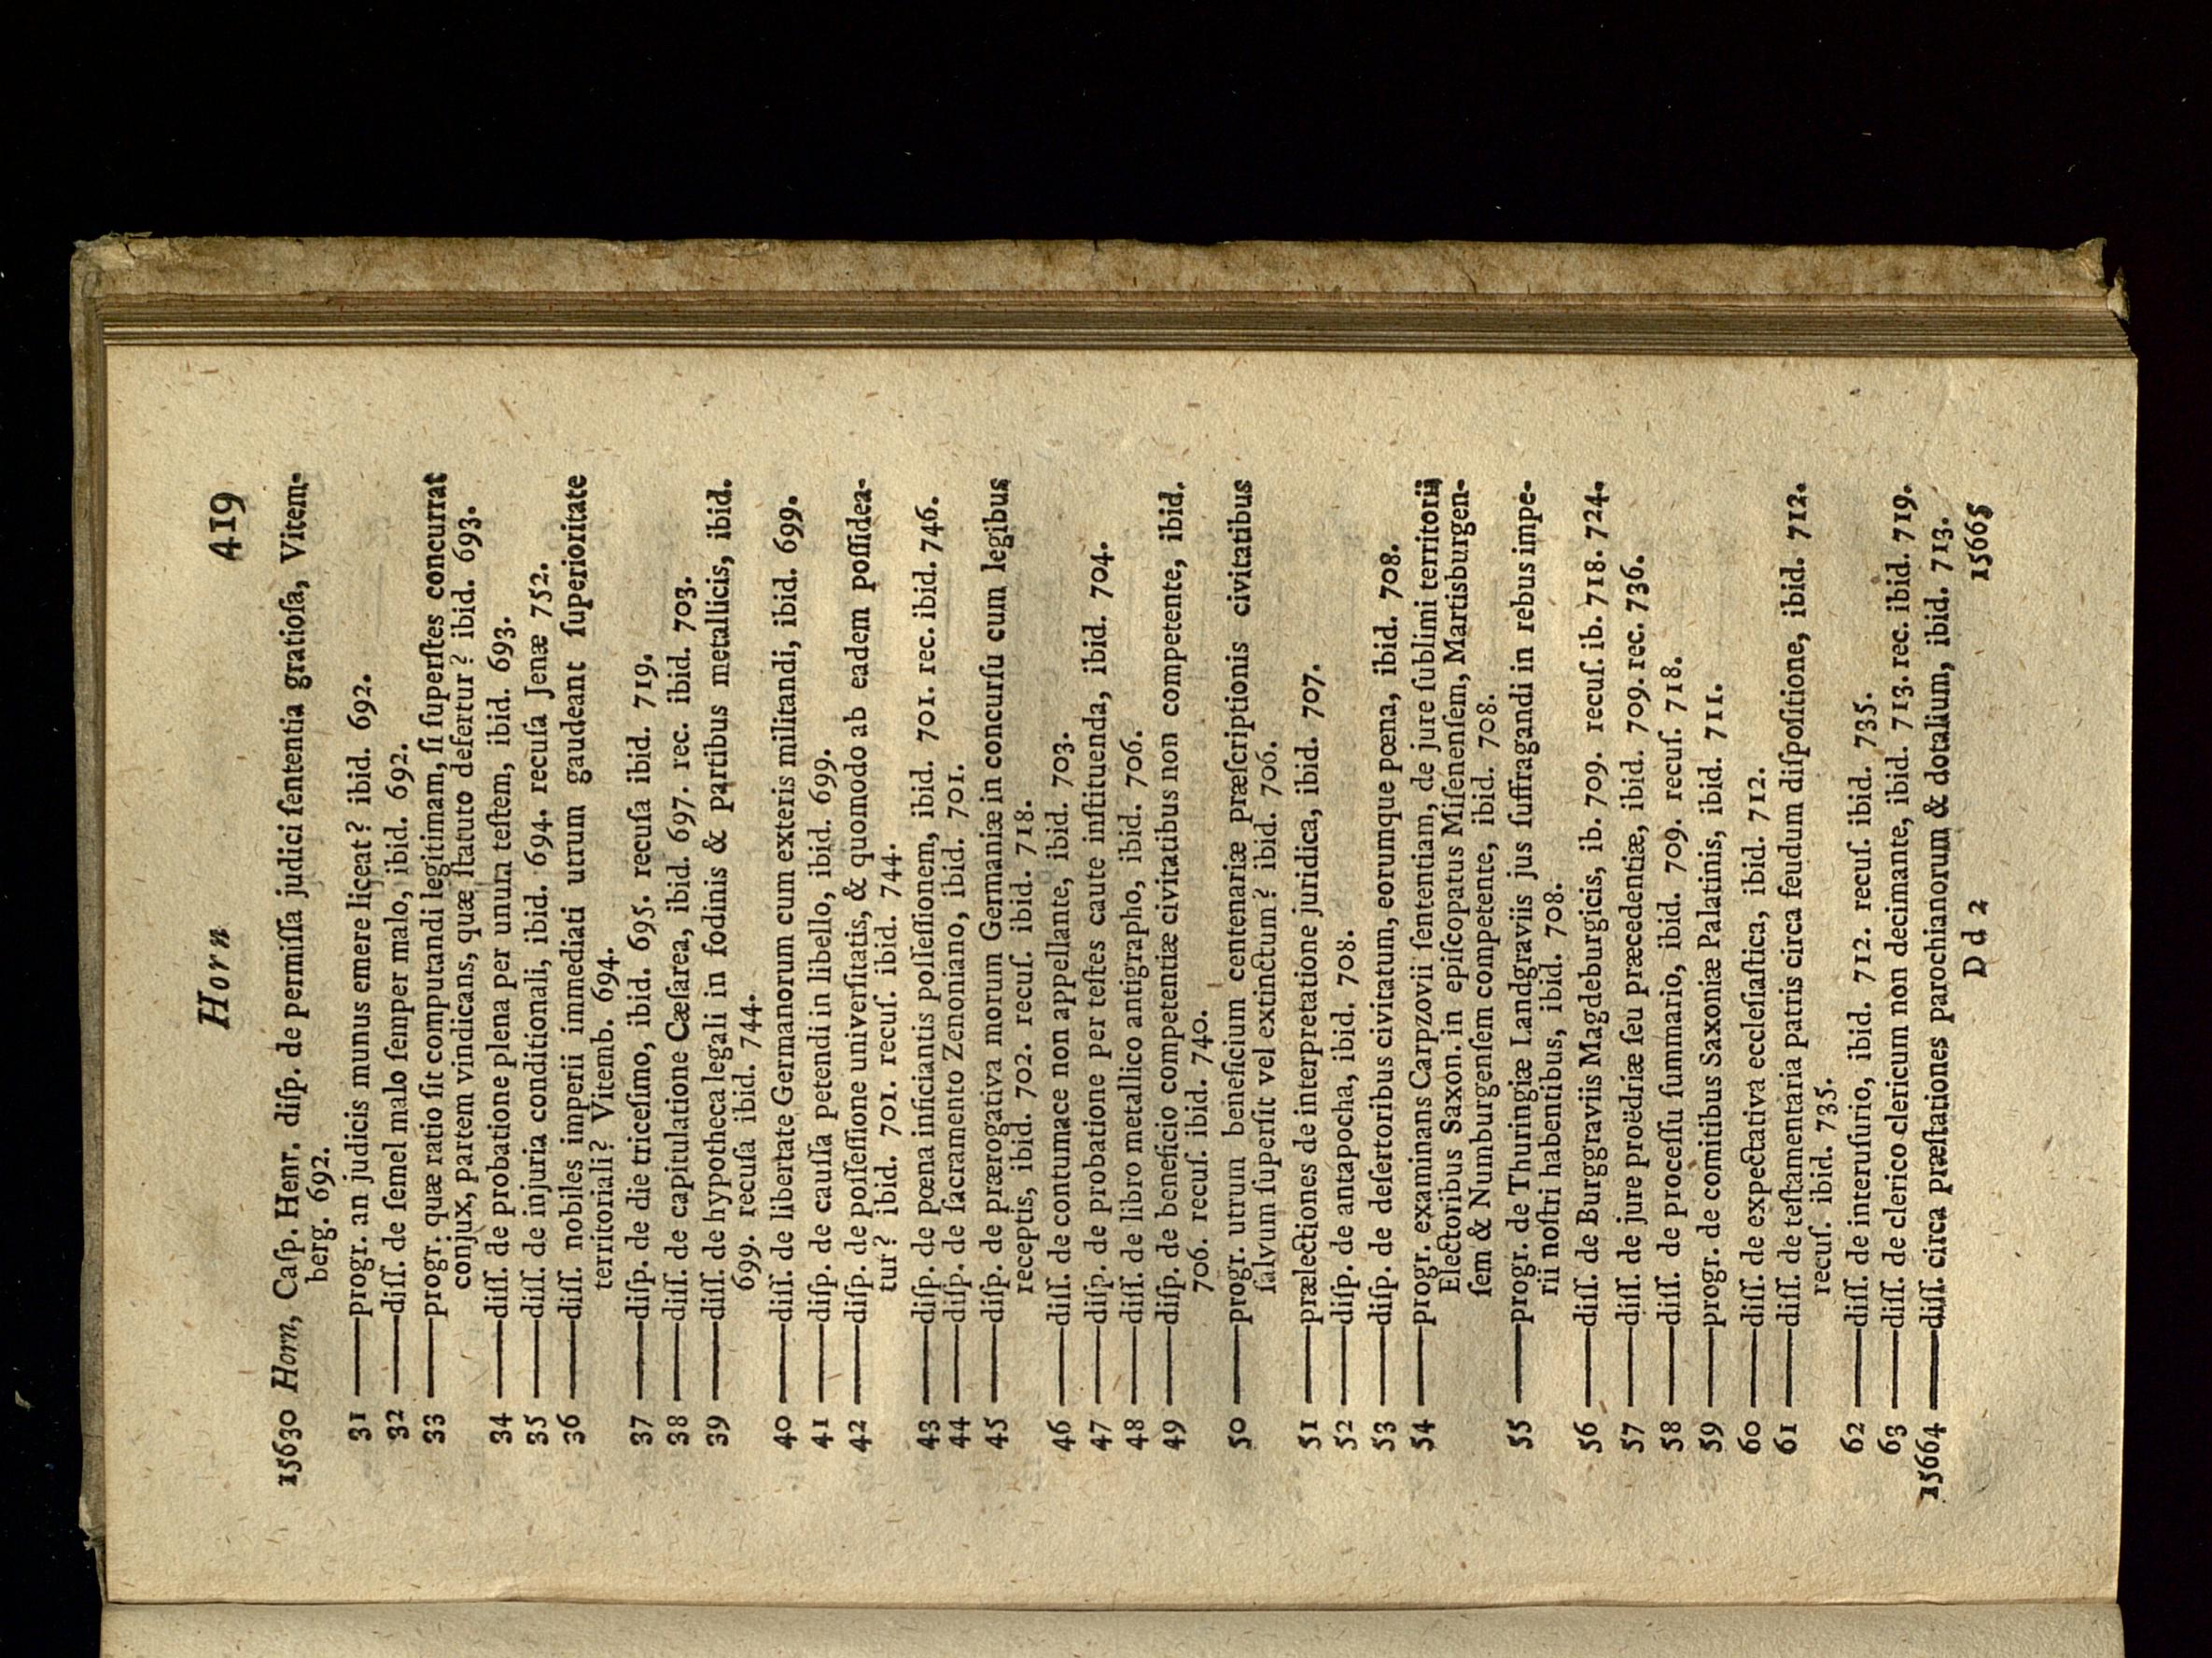 Horn 419
15630 Horn, Caſp. Henr. diſp. de permiſſa judici ſententia gratioſa, Vitem-
berg. 692.
31 ——progr. an judicis munus emere liceat? ibid. 692.
32 ——diſſ. de ſemel malo ſemper malo, ibid. 692.
33 ——progr. quæ ratio ſit computandi legitimam, ſi ſuperſtes concurrat
conjux, partem vindicans, quæ ſtatuto defertur? ibid. 693.
34 ——diſſ. de probatione plena per unum teſtem, ibid. 693.
35 ——diſſ. de injuria conditionali, ibid. 694. recuſa Jenæ 752.
36 ——diſſ. nobiles imperii immediati utrum gaudeant ſuperioritate
territoriali? Vitemb. 694.
37 ——diſp. de die triceſimo, ibid. 695. recuſa ibid. 719.
38 ——diſſ. de capitulatione Cæſarea, ibid. 697. rec. ibid. 703.
39 ——diſſ. de hypotheca legali in fodinis & partibus metallicis, ibid.
699. recuſa ibid. 744.
40 ——diſſ. de libertate Germanorum cum exteris militandi, ibid. 699.
41 ——diſp. de cauſſa petendi in libello, ibid. 699.
42 ——diſp. de poſſeſſione univerſitatis, & quomodo ab eadem poſſidea-
tur? ibid. 701. recuſ. ibid. 744.
43 ——diſp. de pœna inficiantis poſſeſſionem, ibid. 701. rec. ibid. 746.
44 ——diſp. de ſacramento Zenoniano, ibid. 701.
45 ——diſp. de prærogativa morum Germaniæ in concurſu cum legibus
receptis, ibid. 702. recuſ. ibid. 718.
46 ——diſſ. de contumace non appellante, ibid. 703.
47 ——diſp. de probatione per teſtes caute inſtituenda, ibid. 704.
48 ——diſſ. de libro metallico antigrapho, ibid. 706.
49 ——diſp. de beneficio competentiæ civitatibus non competente, ibid.
706. recuſ. ibid. 740.
50 ——progr. utrum beneficium centenariæ præſcriptionis civitatibus
ſalvum ſuperſit vel extinctum? ibid. 706.
51 ——prælectiones de interpretatione juridica, ibid. 707.
52 ——diſp. de antapocha, ibid. 708.
53 ——diſp. de deſertoribus civitatum, eorumque pœna, ibid. 708.
54 ——progr. examinans Carpzovii ſententiam, de jure ſublimi territorij
Electoribus Saxon. in epiſcopatus Miſenenſem, Martisburgen-
ſem & Numburgenſem competente, ibid. 708.
55 ——progr. de Thuringiæ Landgraviis jus ſuffragandi in rebus impe-
rii noſtri habentibus, ibid. 708.
56 ——diſſ. de Burggraviis Magdeburgicis, ib. 709. recuſ. ib. 718. 724.
57 ——diſſ. de jure proëdriæ ſeu præcedentiæ, ibid. 709. rec. 736.
58 ——diſſ. de proceſſu ſummario, ibid. 709. recuſ. 718.
59 ——progr. de comitibus Saxoniæ Palatinis, ibid. 711.
60 ——diſſ. de expectativa eccleſiaſtica, ibid. 712.
61 ——diſſ. de teſtamentaria patris circa feudum diſpoſitione, ibid. 712.
recuſ. ibid. 735.
62 ——diſſ. de interuſurio, ibid. 712. recuſ. ibid. 735.
63 ——diſſ. de clerico clericum non decimante, ibid. 713. rec. ibid. 719.
15664 ——diſſ. circa præſtationes parochianorum & dotalium, ibid. 713.
D d 2 15665